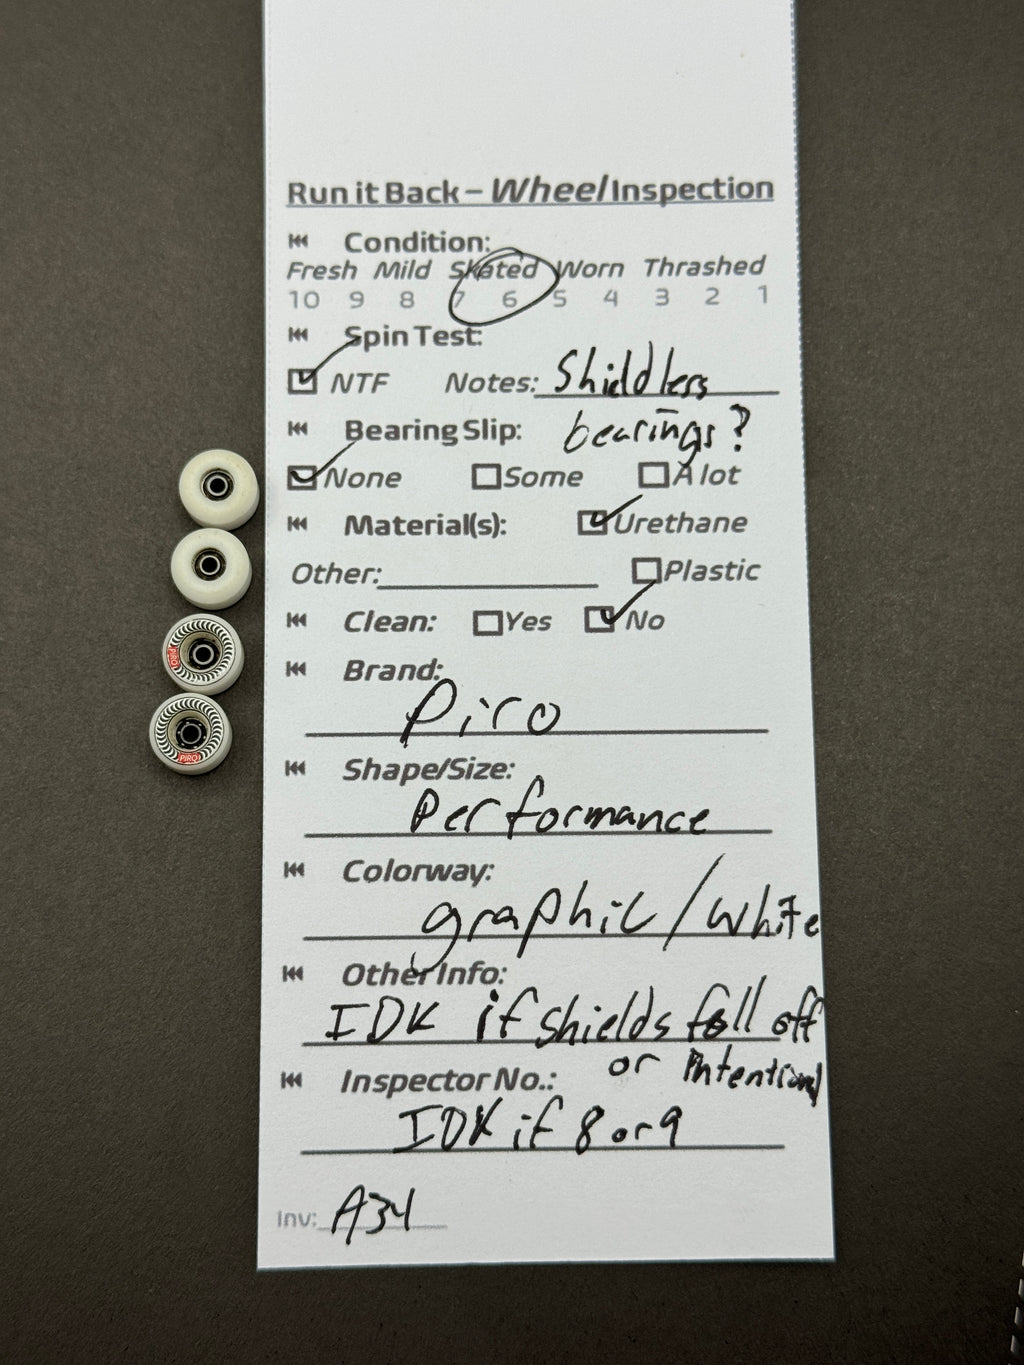 Run it Back – Wheel Inspection
Condition:
Fresh Mild Skated Worn Thrashed
10 9 8 7 6 5 4 3 2 1
Spin Test:
NTF Notes: Shieldless
Bearing Slip: bearings?
None Some A lot
Material(s): Urethane
Other: Plastic
Clean: Yes No
Brand:
Piro
Shape/Size:
Performance
Colorway:
graphic/white
Other Info:
IDK if shields fall off
or intentional
Inspector No.:
IDK if 8 or 9
Inv: A34
PIRO
PIRO